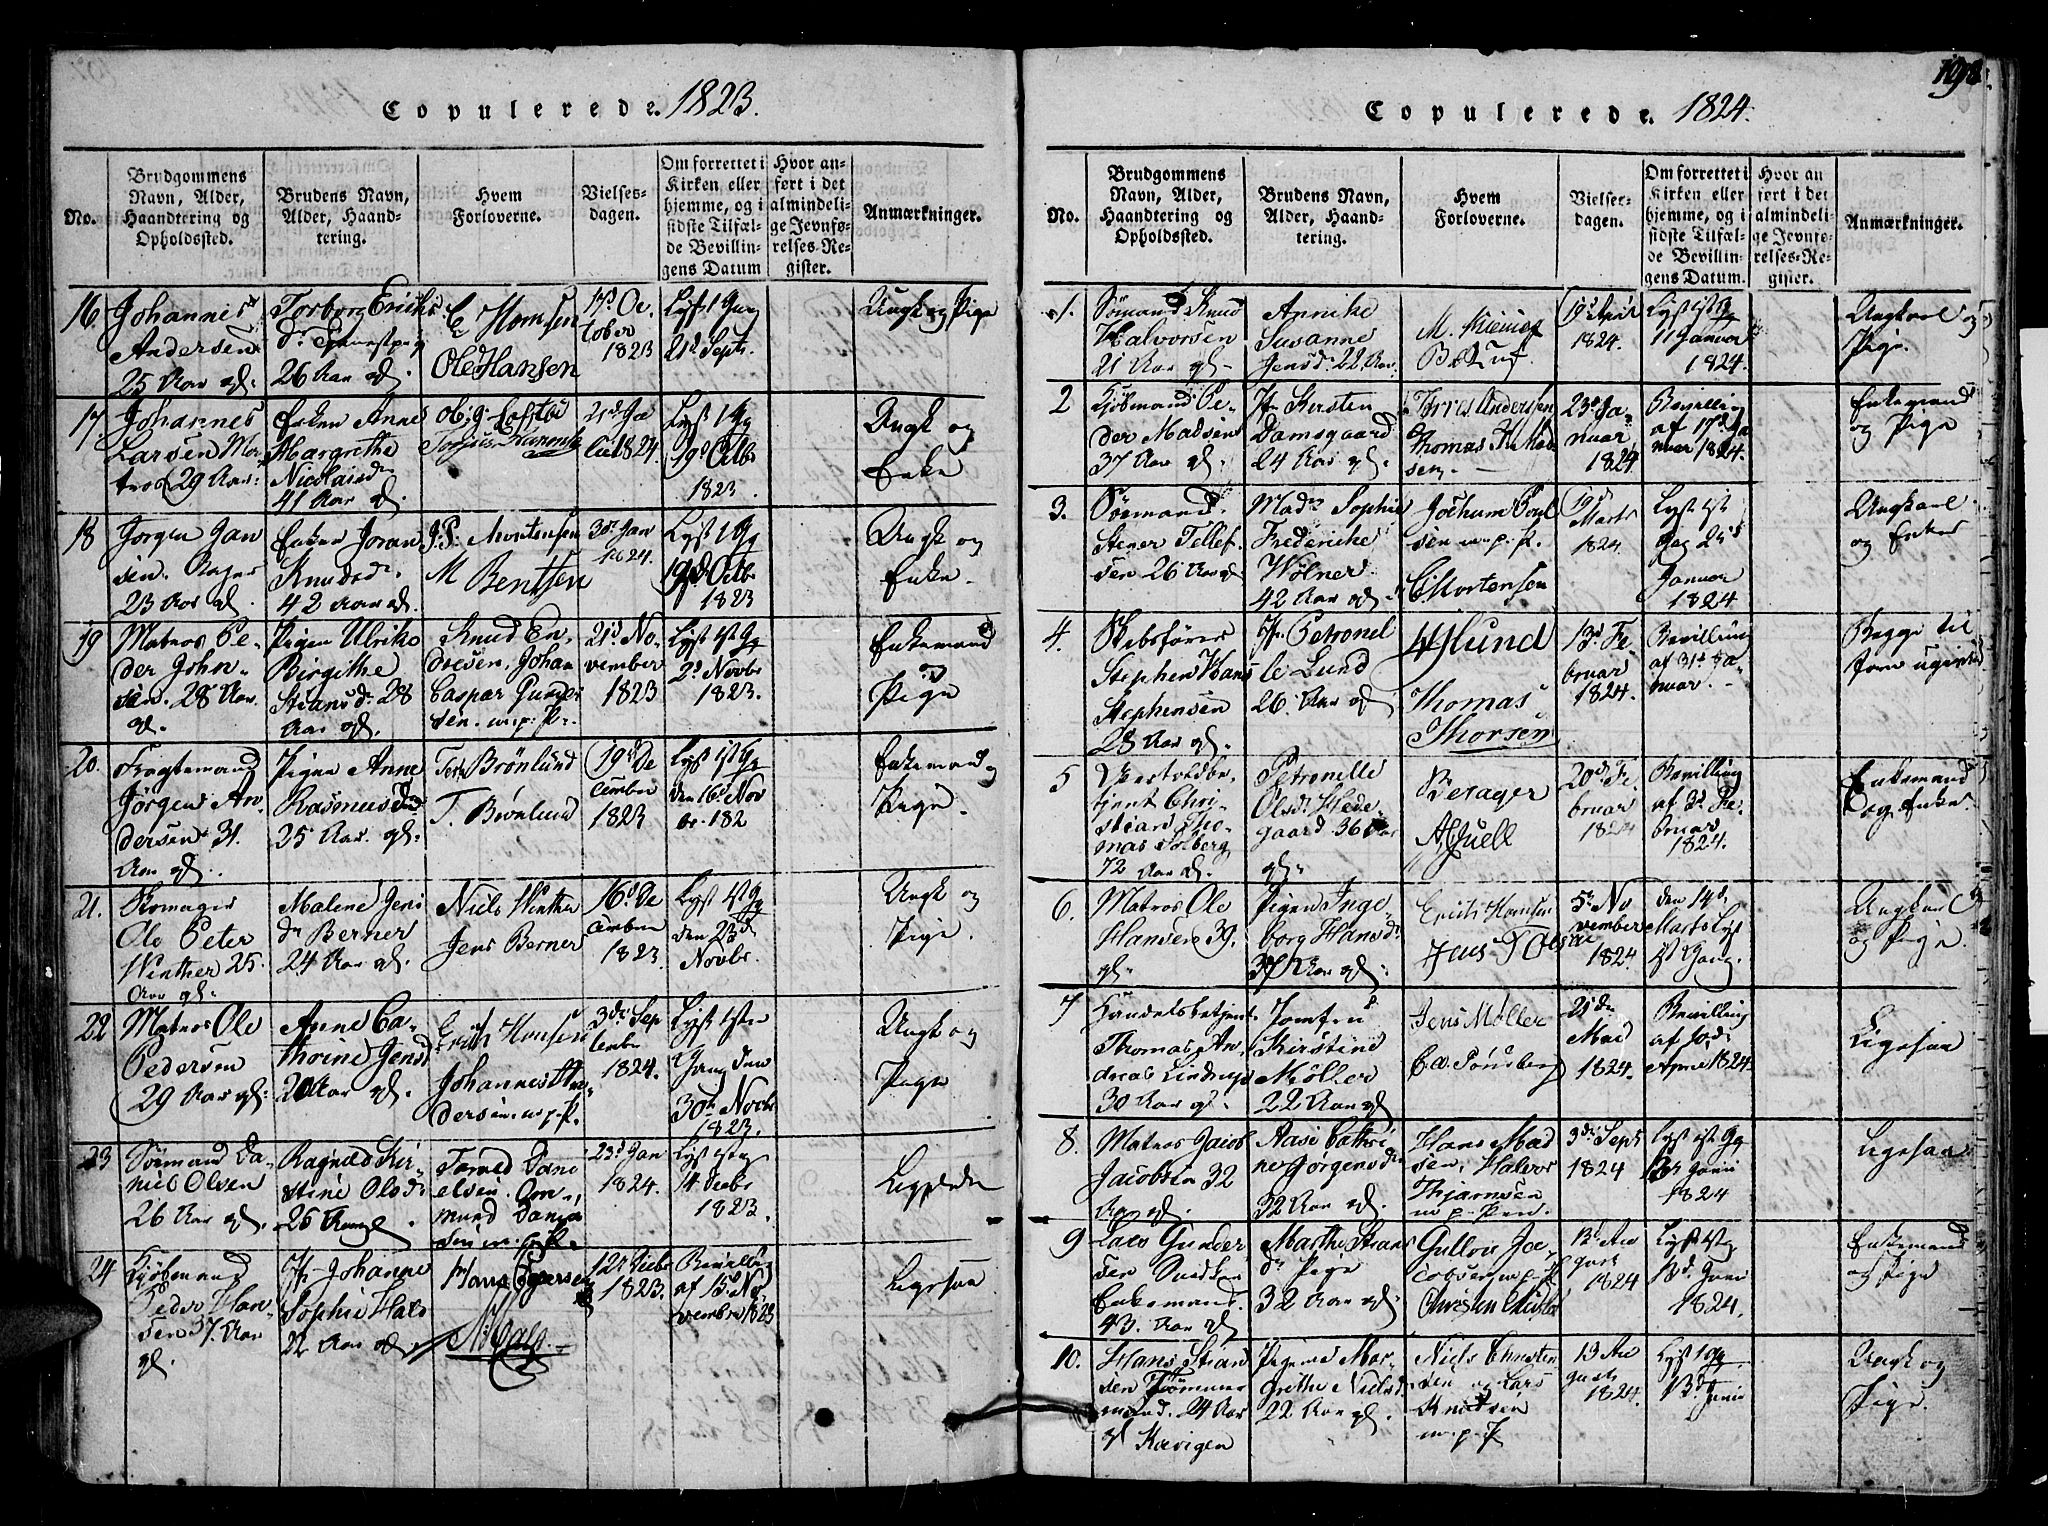 Copulerede. 1823.
No.
Brudgommens
Navn, Alder,
Haandtering og
Opholdssted.
Brudens Navn,
Alder, Haand-
tering.
Hvem
Forloverne.
Vielses-
dagen.
Om forrettet i
Kirken eller
hjemme, og i
sidste Tilfæl-
de Bevillin-
gens Datum
Hvor an-
ført i det
almindeli-
ge Jevnfø-
relses-Re-
gister.
Anmærkninger.
16.
Johannes
Andersen
25 Aar gl.
Torborg Eriks
26 Aar gl.
Ole Hansen
17d Oc
tober
1823
Lyst 1 Gang
21d Septr.
Ungk og Pige
17
Johannes
Larsen Ma
tros 29 Aar
Enken Anne
Margrethe
Nicolaisd
41 Aar gl.
1824.
Lyst 1 Gg
19d Octbr
1823
Ungk og
Enke
18
Jørgen Jan
sen.
23 Aar gl.
Enken Joran
Knudsdr.
42 Aar gl.
J. P. Mortensen
M Bentsen
30d Jan
1824.
Lyst 1 Gg
19d Octbr
1823
Ungk og
Enke.
19
Matros Pe-
der John-
sen. 28 Aar
gl.
Pigen Ulrike
Birgithe
28
Aar gl.
Knud En-
dresen, Johan
Caspar Gunder
sen. m. p. P.
21d No-
vember
1823
Lyst 1st Gg
2d Novbr
1823.
Enkemand
og
Pige
20.
Fragtemand
Jørgen An-
dersen 31.
Aar gl.
Pigen Anne
Rasmusdr
25 Aar. gl.
Brønlund
T. Brønlund
19d De
cember
1823
Lyst 1st Gg
den 16d Nov
br. 182
Enkemand og
Pige.
21.
Ole Peter
Winther 25.
Aar gl.
Malene Jens
dr Berner
24 Aar gl.
Niels Winther
Jens Berner
16d De
cember
1823.
Lyst 1st Gg
den 23d
Novbr.
Ungk og
Pige.
22
Matros Ole
Pedersen
29 Aar gl.
Anne Ca-
thrine Jensd
Aar gl.
Erich Hansen
Johannes An-
dersen m. p. P.
3d Sep
tember
1824.
Lyst 1ste
Gang den
30te Novbr
1823.
Ungk og
Pige
23
Sømand Da-
niel Olsen
26 Aar gl.
Ragnild Kir-
stine Olsdr
Dani
elsen. Om-
mund Daniel
sen m. p.
23d Jan
1824.
Lyst 1ste g
14 Decbr
1823.
24
Kjøbmand
Peder Han-
sen 37. Aar
gl.
Jfr Johanne
Sophie Hals
22 Aar gl.
Hans
N. Hals
12d Decbr
1823.
Bevilling
af 15d No-
vember 1823
Ligesaa
Copulerede. 1824.
198.
No.
Brudgommens
Navn, Alder,
Haandtering og
Opholdssted.
Brudens Navn,
Alder, Haand-
tering.
Hvem
Forloverne.
Vielses-
dagen.
Om forrettet i
Kirken eller
hjemme, og i
sidste Tilfæl-
de Bevillin-
gens Datum.
Hvor an
ført i det
almindeli-
ge Jevnfø-
relses-Re-
gister.
Anmærkninger.
1.
Sømand Knud
Halvorsen
21 Aar gl
Annike
Susanne
Jensd. 22 Aar.
19d
1824.
Lyst 1st Gg
11 Januar
1824.
Ungkarl og
Pige.
2
Kjøbmand Pe-
der Madsen
37 Aar gl.
Jfr Kirsten
Damsgaard
24 Aar gl.
Andersen
Thomas Mad
sen.
23d Ja-
nuar,
1824
Bevilling
af 17d Ja
nuar 1824.
Enkemand
og Pige
3.
Sømand
Tellef-
sen 26 Aar gl
Madm Sophie
Frederike
Wølner
42 Aar gl.
Jochum Poul
sen m. p. P.
C. Mortensen
19d
Marts
1824
Lyst 1st
Gg 25d
Januar
1824
Ungkarl
og Enke
4.
Skibsfører
Stephen Hans
Stephensen
28 Aar gl.
Jfr Petronel
le Lund
26. Aar gl
Lund
Thomas
Thorsen
13d Fe-
bruar
1824.
Bevilling
af 31t Ja-
nuar.
Begge til
forn ugivte
5
Christian Tho-
mas Solberg
72 Aar gl.
Petronelle
Olsdr Hede
gaard 36 Aar
gl.
Berager
A Juell
20d Fe-
bruar
1824
Bevilling
af 3d Fe-
bruar
1824.
Enkemand
og Enke.
6.
Matros Ole
Hansen 39.
gl.
Pigen Inge-
borg Hansdr
37 Aar gl.
Erich Hansen
Jens Olsen
5d No
vember
1824.
den 14d
Marts Lyst
1st Gang.
Ungkarl
og Pige.
7
Handelsbetjent
Thomas An-
dreas Lindrup
30 Aar gl.
Jomfru
Kirstine
Møller
22 Aar gl
Jens Møller
C. A. Tønsberg
21d
Mai
1824.
Bevilling
af 10d
April 1824.
Ligesaa
8.
Matros Jacob
Jacobsen 32
Aar gl.
Aase Cathri
ne Jørgensdr
32 Aar gl.
Hans Mad
sen, Halvor
m. p. Pen.
3d Septr
1824
Lyst 1st Gg
Junii
1824
Ligesaa
9
Lars Gunder
sen
Enkemand.
43. Aar gl
Marthe
dr Pige
32 Aar gl.
Gullov Ja-
cobsen m. p. P
13d Au
gust
1824
Lyst 1st g
13d Junii
1824.
Enkemand
og Pige
10.
Hans
sen Tømmer
mand. 24 Aar
gl Kævigen
Pigen Mar-
grethe Nielsd
22 Aar gl.
Niels Christen
sen og Lars
Knudsen
m. p. P
13 Au
gust
1824.
Lyst 1 gg
13d Junii
Ungk og
Pige.